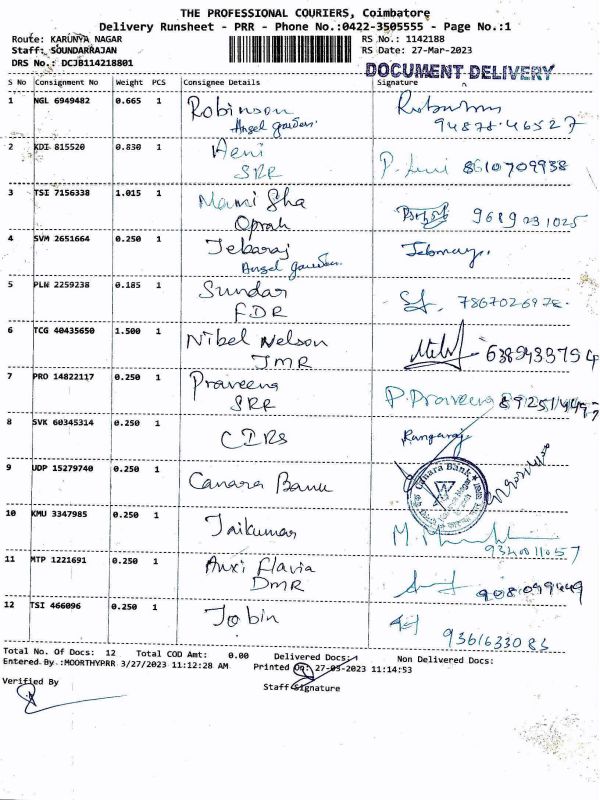 THE PROFESSIONAL COURIERS, Coimbatore
Delivery Runsheet - PRR - Phone No.:0422-3505555 - Page No.:1
Route: KARUNYA NAGAR
RS No.: 1142188
Staff: SOUNDARRAJAN
RS Date: 27-Mar-2023
DRS No.: DCJB114218801
DOCUMENT DELIVERY
S No Consignment No Weight PCS Consignee Details Signature
1 NGL 6949482 0.665 1 Robinson
Angel garden. 94878.46527
2 KDI 815520 0.830 1 Heni
SRR 8610709938
3 TSI 7156338 1.015 1 Mami Sha
Oprah 9689231025
4 SVM 2651664 0.250 1 Jebaraj
Angel garden.
5 PLN 2259238 0.185 1 Sundar
FDR 7867026978.
6 TCG 40435650 1.500 1 Nibel Nelson
JMR 6389433794
7 PRO 14822117 0.250 1 Praveena P. Praveena
SRR
8 SVK 60345314 0.250 1 CIRS Rangaraj
9 UDP 15279740 0.250 1 Canara Bank
Canara Bank
10 KMU 3347985 0.250 1 Jaikumar
9340011057
11 MTP 1221691 0.250 1 Anxi Flavia
DMR
12 TSI 466096 0.250 1 Jobin
9361633083
Total No. Of Docs: 12 Total COD Amt: 0.00 Delivered Docs: Non Delivered Docs:
Entered By :MOORTHYPRR 3/27/2023 11:12:28 AM Printed On: 27-03-2023 11:14:53
Verified By
Staff Signature